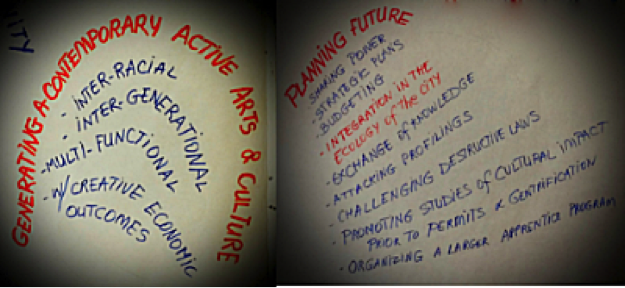 ITY
GENERATING A CONTEMPORARY ACTIVE ARTS & CULTURE
- INTER-RACIAL
- INTER-GENERATIONAL
- MULTI-FUNCTIONAL
- W/ CREATIVE ECONOMIC
OUTCOMES
PLANNING FUTURE
- SHARING POWER
- STRATEGIC PLANS
- BUDGETING
- INTEGRATION IN THE
ECOLOGY of the CITY
- EXCHANGE of KNOWLEDGE
- ATTACKING PROFILINGS
- CHALLENGING DESTRUCTIVE LAWS
- PROMOTING STUDIES of CULTURAL IMPACT
PRIOR TO PERMITS & GENTRIFICATION
- ORGANIZING A LARGER APPRENTICE PROGRAM